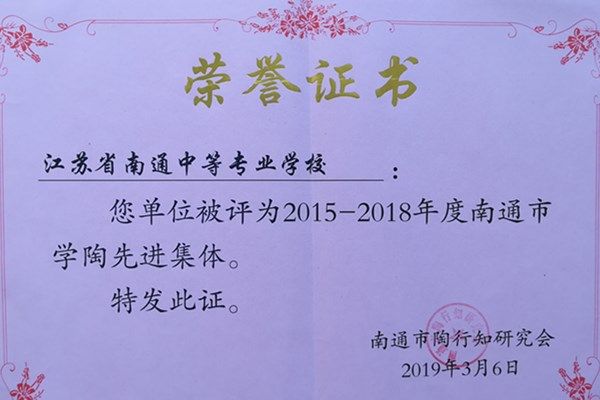 荣誉证书
江苏省南通中等专业学校：
您单位被评为2015-2018年度南通市
学陶先进集体。
特发此证。
南通市陶行知研究会
2019年3月6日